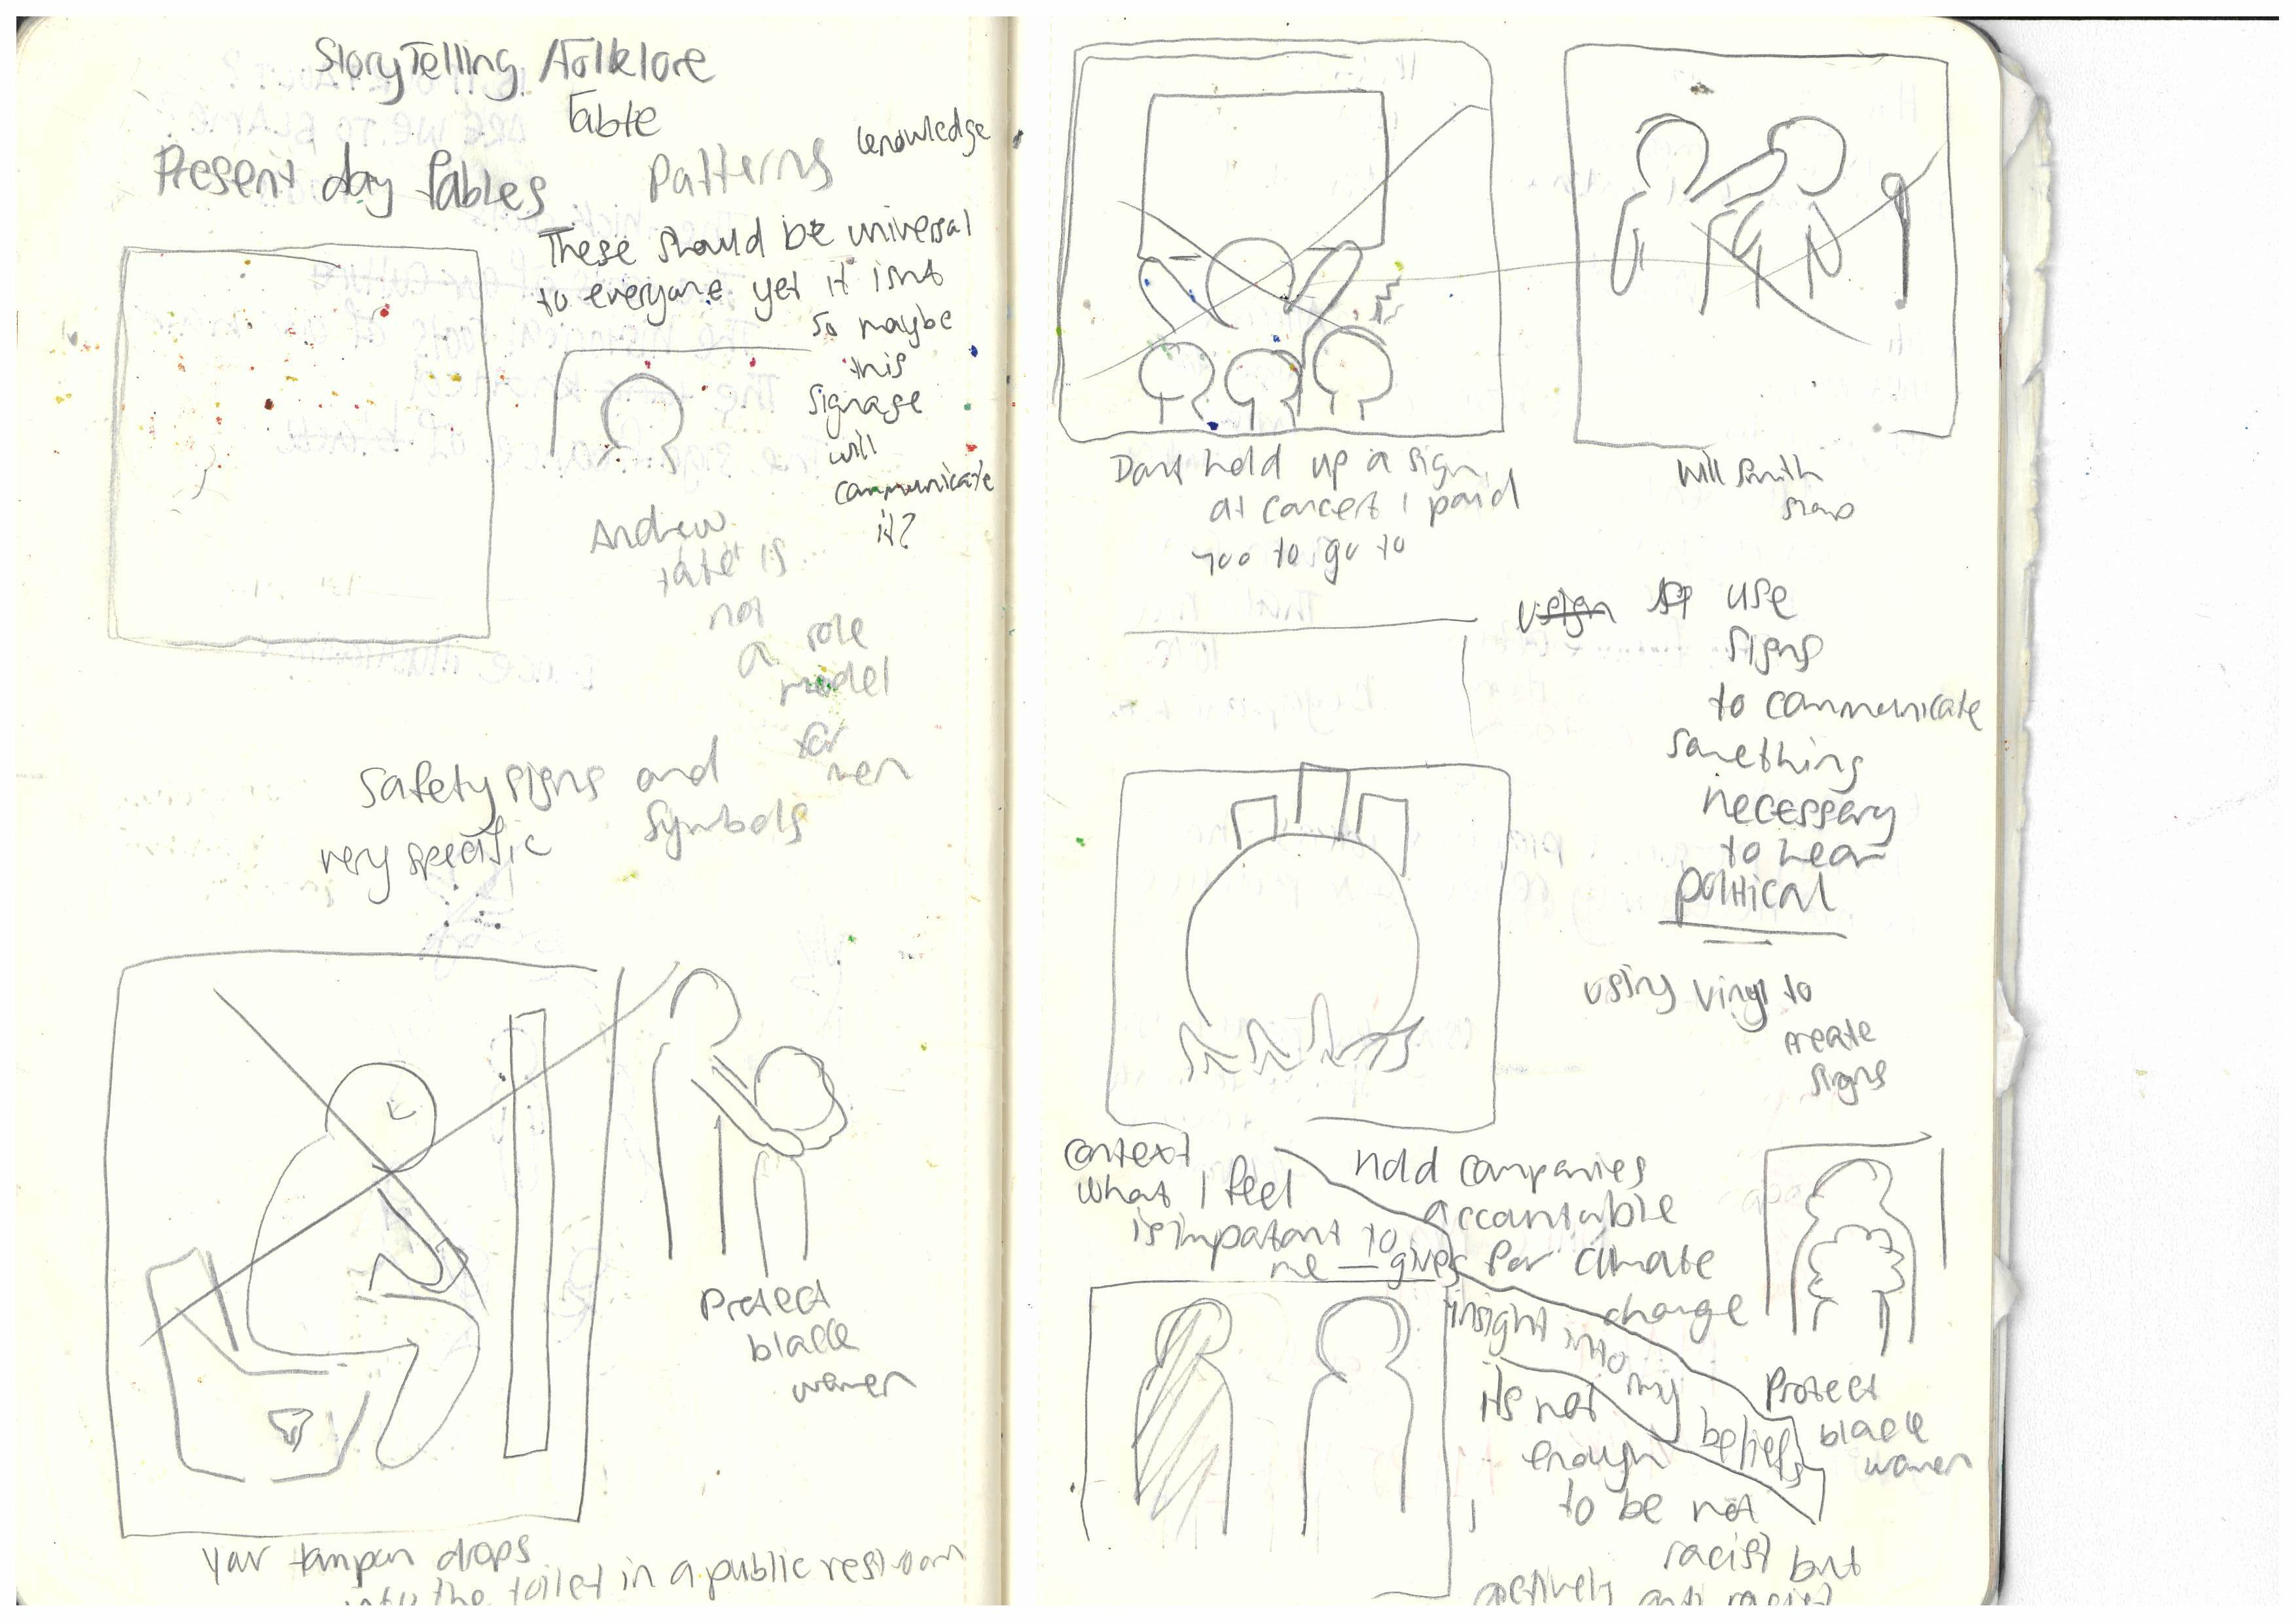 StoryTelling /Folklore
Fable
Present day fables
Patterns
knowledge
These should be universal
to everyone yet it isnt
so maybe
this
signage
will
communicate
it?
Andrew
tate is
not
a role
model
for
men
Safety signs and
Symbols
very specific
Protect
black
women
Your tampon drops
into the toilet in a public restroom
Dont hold up a sign
at concert I paid
to go to
Will Smith
slap
use
signs
to communicate
something
necessary
to hear
political
using vinyl to
create
signs
context
what I feel
is important to
me — gives
insight into
my
beliefs
hold companies
accountable
for climate
change
its not
enough
to be not
racist but
actively anti racist
Protect
black
women